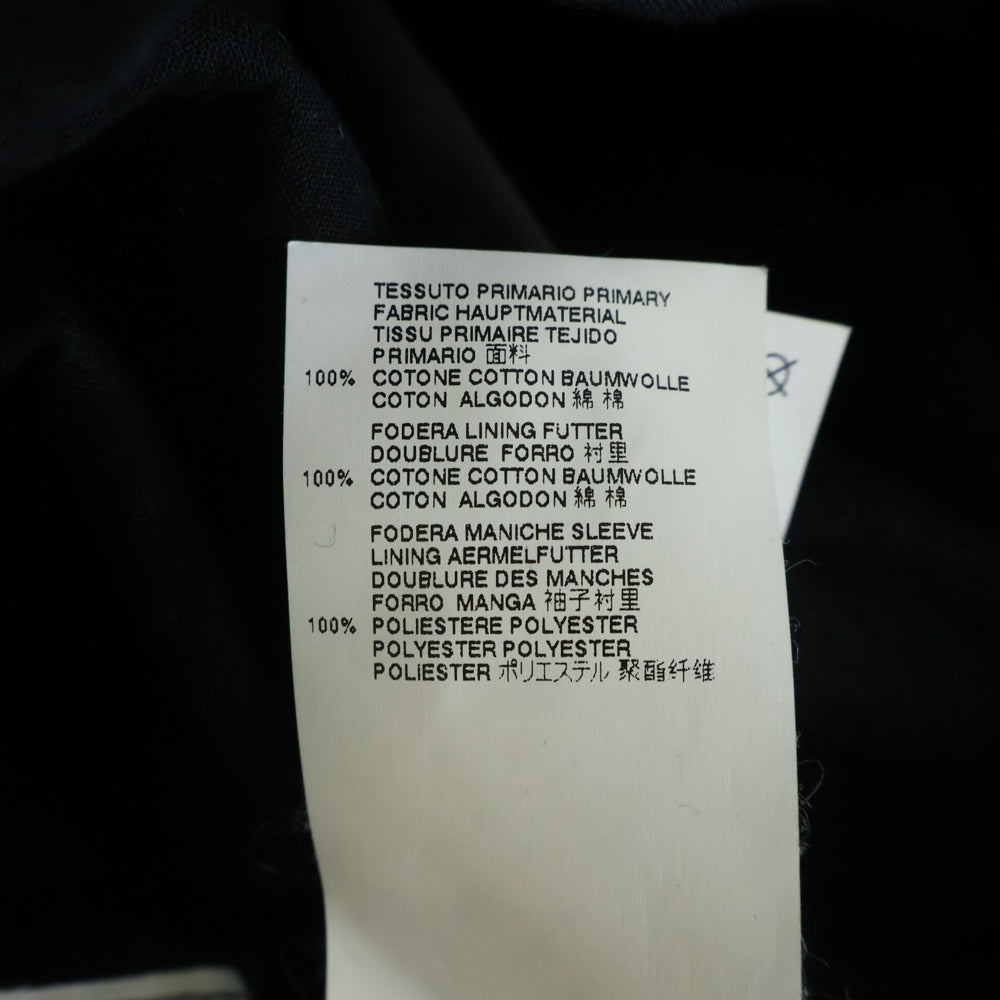 TESSUTO PRIMARIO PRIMARY
FABRIC HAUPTMATERIAL
TISSU PRIMAIRE TEJIDO
PRIMARIO 面料
100% COTONE COTTON BAUMWOLLE
COTON ALGODON 綿 棉
FODERA LINING FUTTER
DOUBLURE FORRO 衬里
100% COTONE COTTON BAUMWOLLE
COTON ALGODON 綿 棉
FODERA MANICHE SLEEVE
LINING AERMELFUTTER
DOUBLURE DES MANCHES
FORRO MANGA 袖子衬里
100% POLIESTERE POLYESTER
POLYESTER POLYESTER
POLIESTER ポリエステル 聚酯纤维